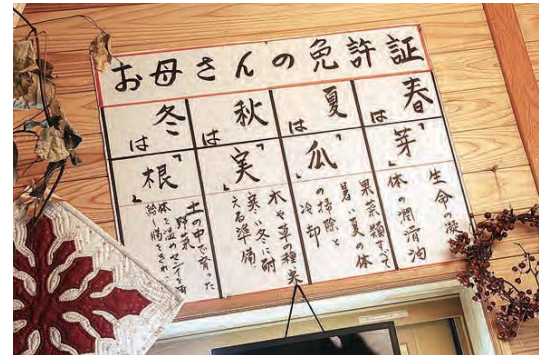 お母さんの免許証
春は
「芽」
生命の
体の潤滑油
夏は
「瓜」
果菜類すべて
暑い夏の体
の掃除と
冷却
秋は
「実」
木や草の種実
寒い冬に耐
える準備
冬は
「根」
土の中で育った
野菜
体を温めセンイを
給し腸をきれ